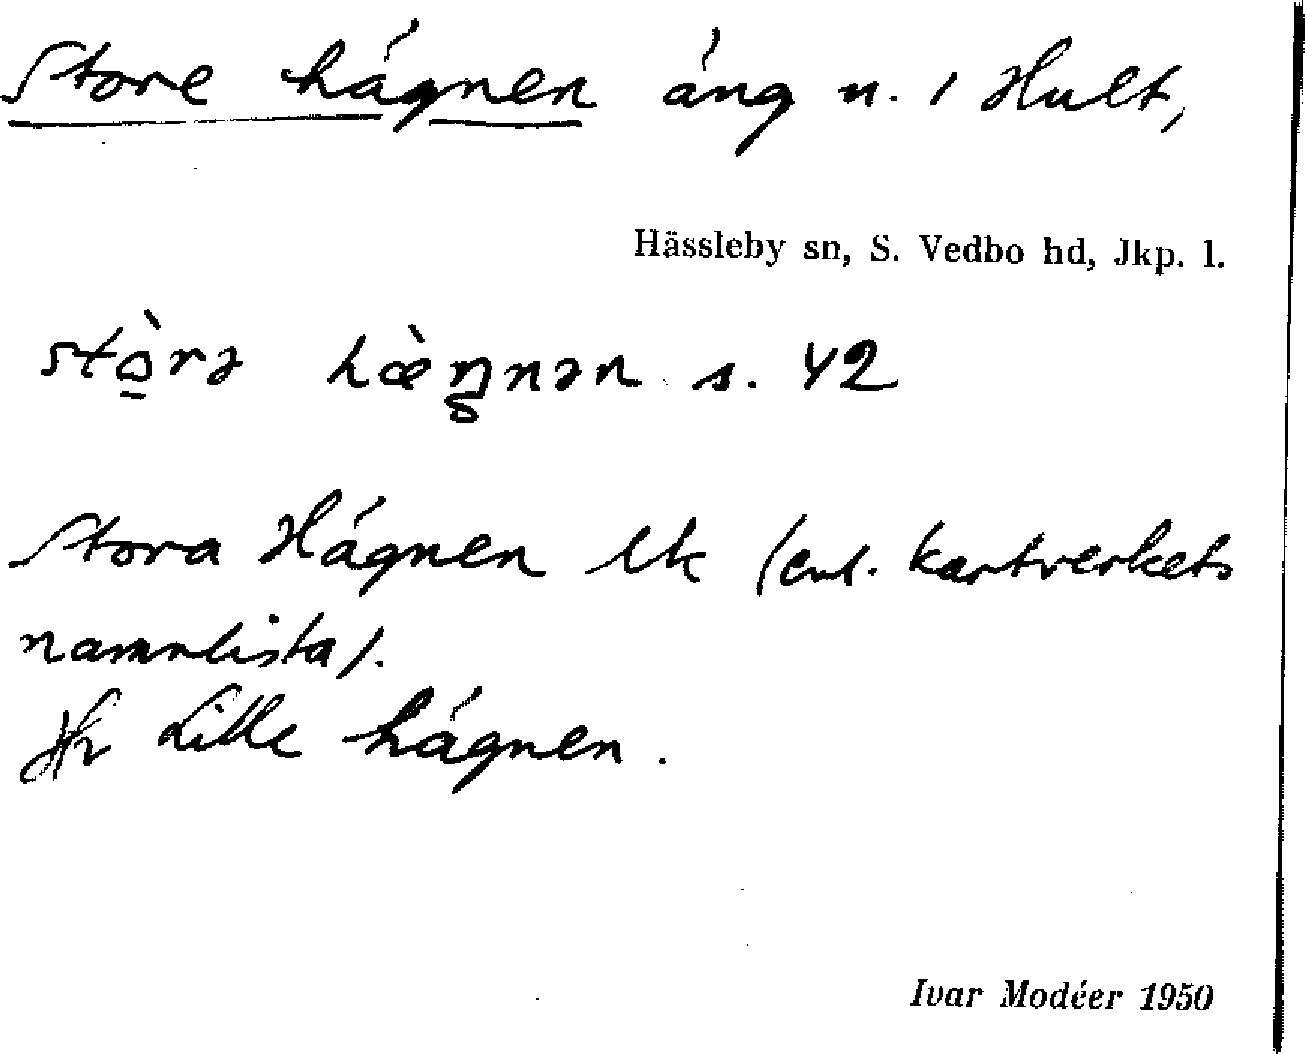 Store hägnen äng n. i Hult,
Hässleby sn, S. Vedbo hd, Jkp. l.
stò̠rə hæ̀ŋnən s. 42
Stora Hägnen Uk (enl. kartverkets
namnlista).
Jfr Lille hägnen.
Ivar Modéer 1950